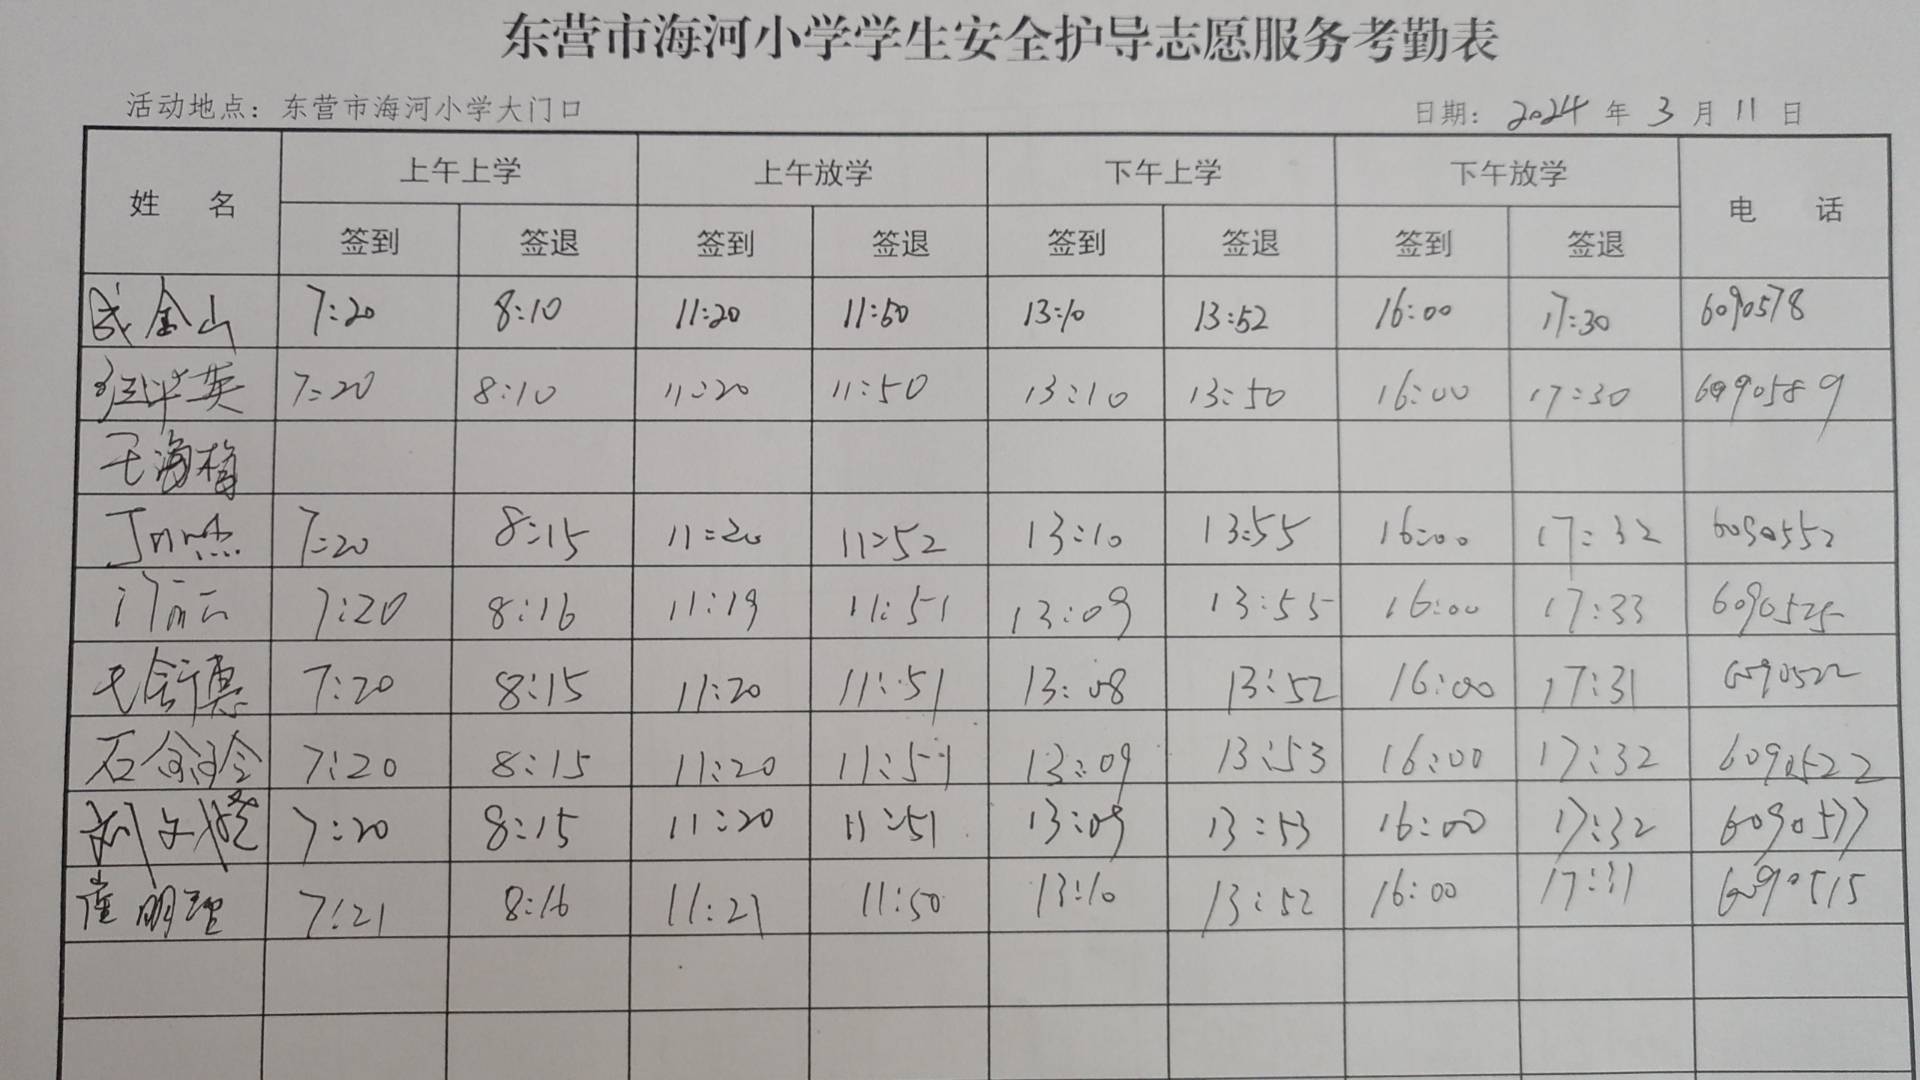 东营市海河小学学生安全护导志愿服务考勤表
活动地点：东营市海河小学大门口 日期：2024年3月11日
姓 名 上午上学 上午放学 下午上学 下午放学 电 话
签到 签退 签到 签退 签到 签退 签到 签退
成金山 7:20 8:10 11:20 11:50 13:10 13:52 16:00 17:30 6090578
英 7:20 8:10 11:20 11:50 13:10 13:50 16:00 17:30 6090589
王海梅
7:20 8:15 11:20 11:52 13:10 13:55 16:00 17:32 6090552
7:20 8:16 11:19 11:51 13:09 13:55 16:00 17:33 6090525
7:20 8:15 11:20 11:51 13:08 13:52 16:00 17:31 6090522
石 玲 7:20 8:15 11:20 11:51 13:09 13:53 16:00 17:32 6090522
刘文 7:20 8:15 11:20 11:51 13:09 13:53 16:00 17:32 6090577
崔明理 7:21 8:16 11:21 11:50 13:10 13:52 16:00 17:31 6090515